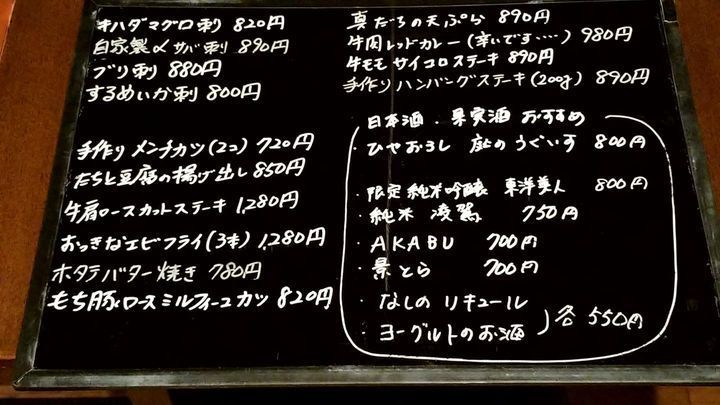 キハダマグロ刺 820円
自家製〆サバ刺 890円
ブリ刺 880円
するめいか刺 800円
手作りメンチカツ(2コ) 720円
たちと豆腐の揚げ出し 850円
牛肩ロースカットステーキ 1,280円
おっきなエビフライ(3本) 1,280円
ホタテバター焼き 780円
もち豚ロースミルフィーユカツ 820円
真だちの天ぷら 890円
牛肉レッドカレー(辛いです・・・) 980円
牛モモサイコロステーキ 890円
手作りハンバーグステーキ(200g) 890円
日本酒・果実酒 おすすめ
・ひやおろし 庭のうぐいす 800円
・限定純米吟醸 東洋美人 800円
・純米 凌駕 750円
・AKABU 700円
・景とら 700円
・なしのリキュール
・ヨーグルトのお酒 各550円